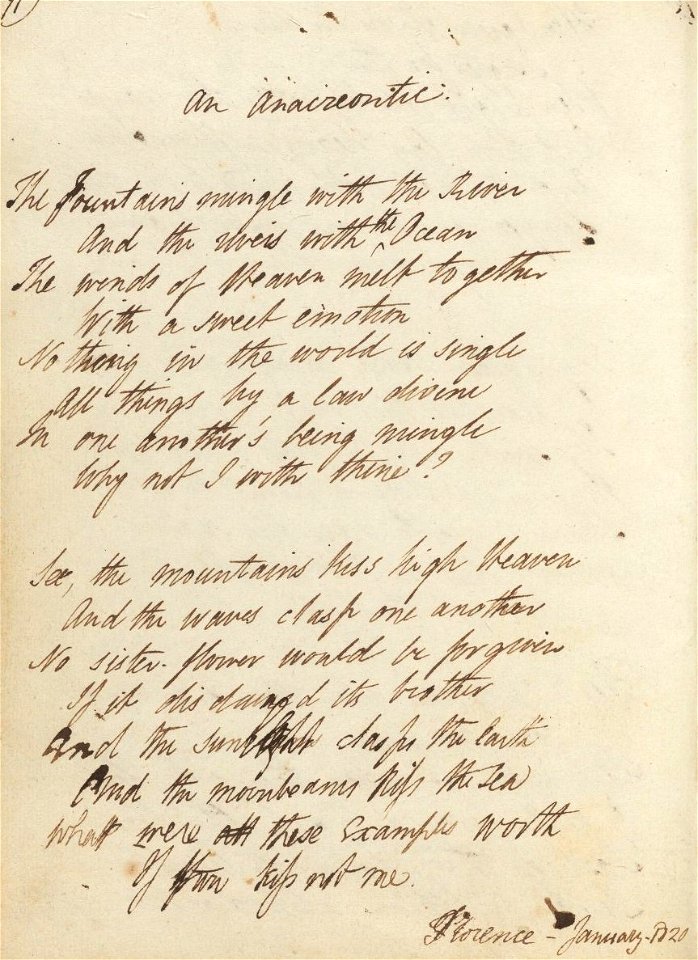 An Anacreontic.
The Fountains mingle with the River
And the rivers with the Ocean
The winds of Heaven melt together
With a sweet emotion
Nothing in the world is single
All things by a law divine
In one another's being mingle
Why not I with thine?
See, the mountains kiss high Heaven
And the waves clasp one another
No sister-flower would be forgiven
If it disdained its brother
And the sunlight clasps the Earth
And the moonbeams kiss the Sea
What were all these Examples worth
If thou kiss not me.
Florence - January. 1820